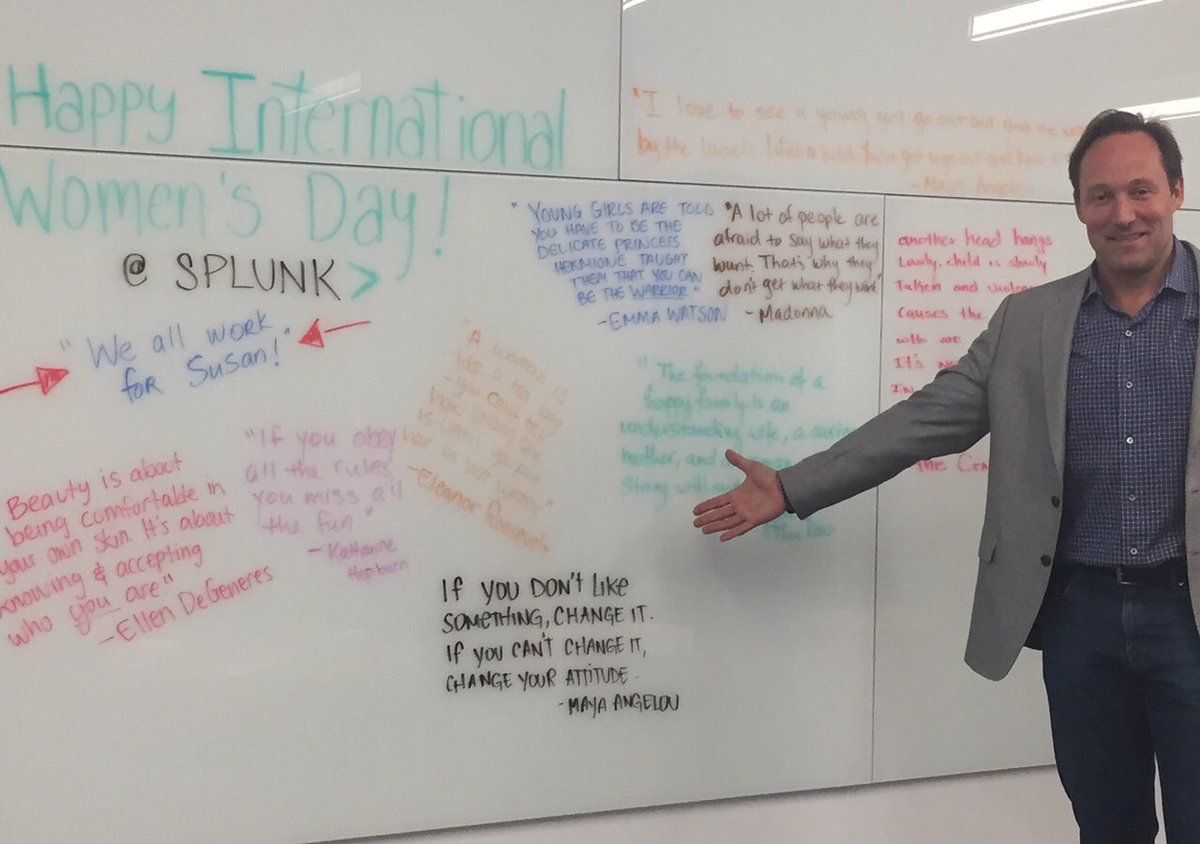 Happy International
Women's Day!
@ SPLUNK>
"We all work
for Susan!"
"I love to see a young girl go out and grab the
by the lapels. Life's a bitch. You've got to go out and kick
- Maya Angelou
"YOUNG GIRLS ARE TOLD
YOU HAVE TO BE THE
DELICATE PRINCESS
HERMIONE TAUGHT
THEM THAT YOU CAN
BE THE WARRIOR"
-EMMA WATSON
"A lot of people are
afraid to say what they
want. That's why they
don't get what they want"
- Madonna
another head hangs
Lowly, child is slowly
Taken and
causes the
who are
It's
In
"A woman is
like a tea bag
- you can't tell
how strong she
is until you put
her in hot water"
-Eleanor Roosevelt
"The foundation of a
happy family is an
understanding wife, a
mother, and
strong
"If you obey
all the rules
you miss all
the fun."
- Katharine
Hepburn
Beauty is about
being comfortable in
your own skin. It's about
knowing & accepting
who you are"
-Ellen DeGeneres
If you DON'T LIKE
SOMETHING, CHANGE IT.
If you CAN'T CHANGE IT,
CHANGE YOUR ATTITUDE.
- MAYA ANGELOU